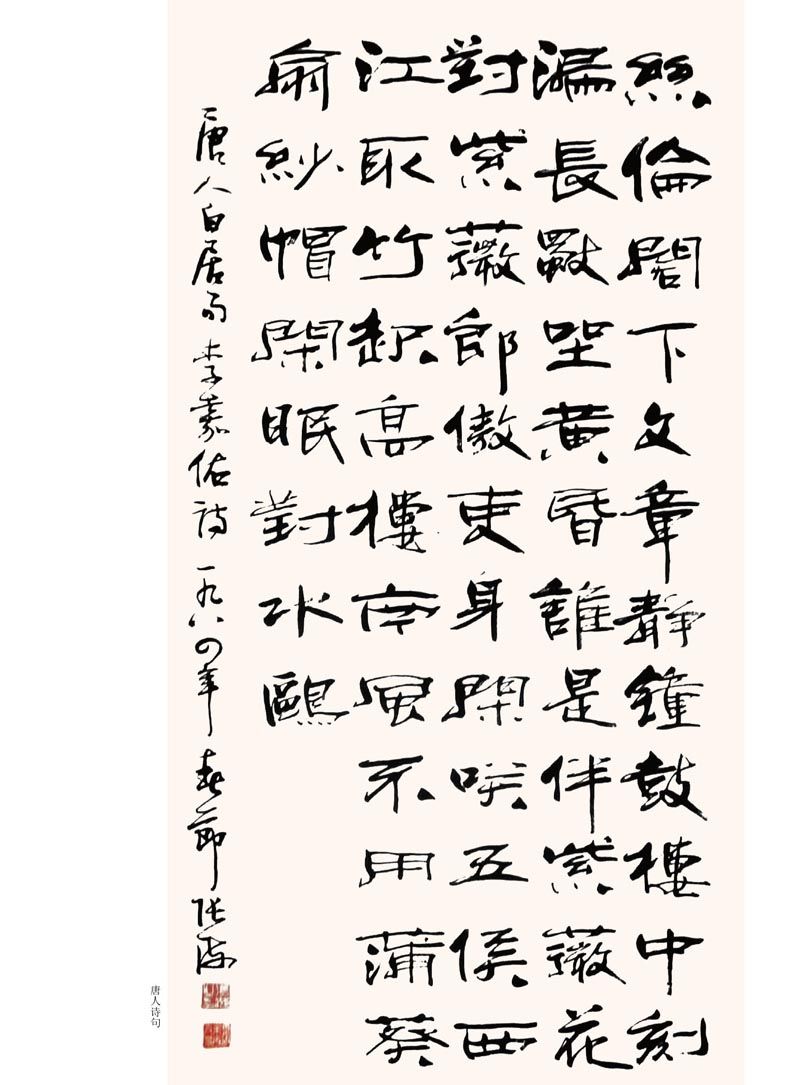 絲倫閣下文章靜鐘鼓樓中刻
漏長獨坐黃昏誰是伴紫薇花
對紫薇郎傲吏身閑咲五侯西
江取竹起高樓南風不用蒲葵
扇紗帽閑眠對水鷗
唐人白居易李嘉佑詩一九八四年春節張海
唐人诗句